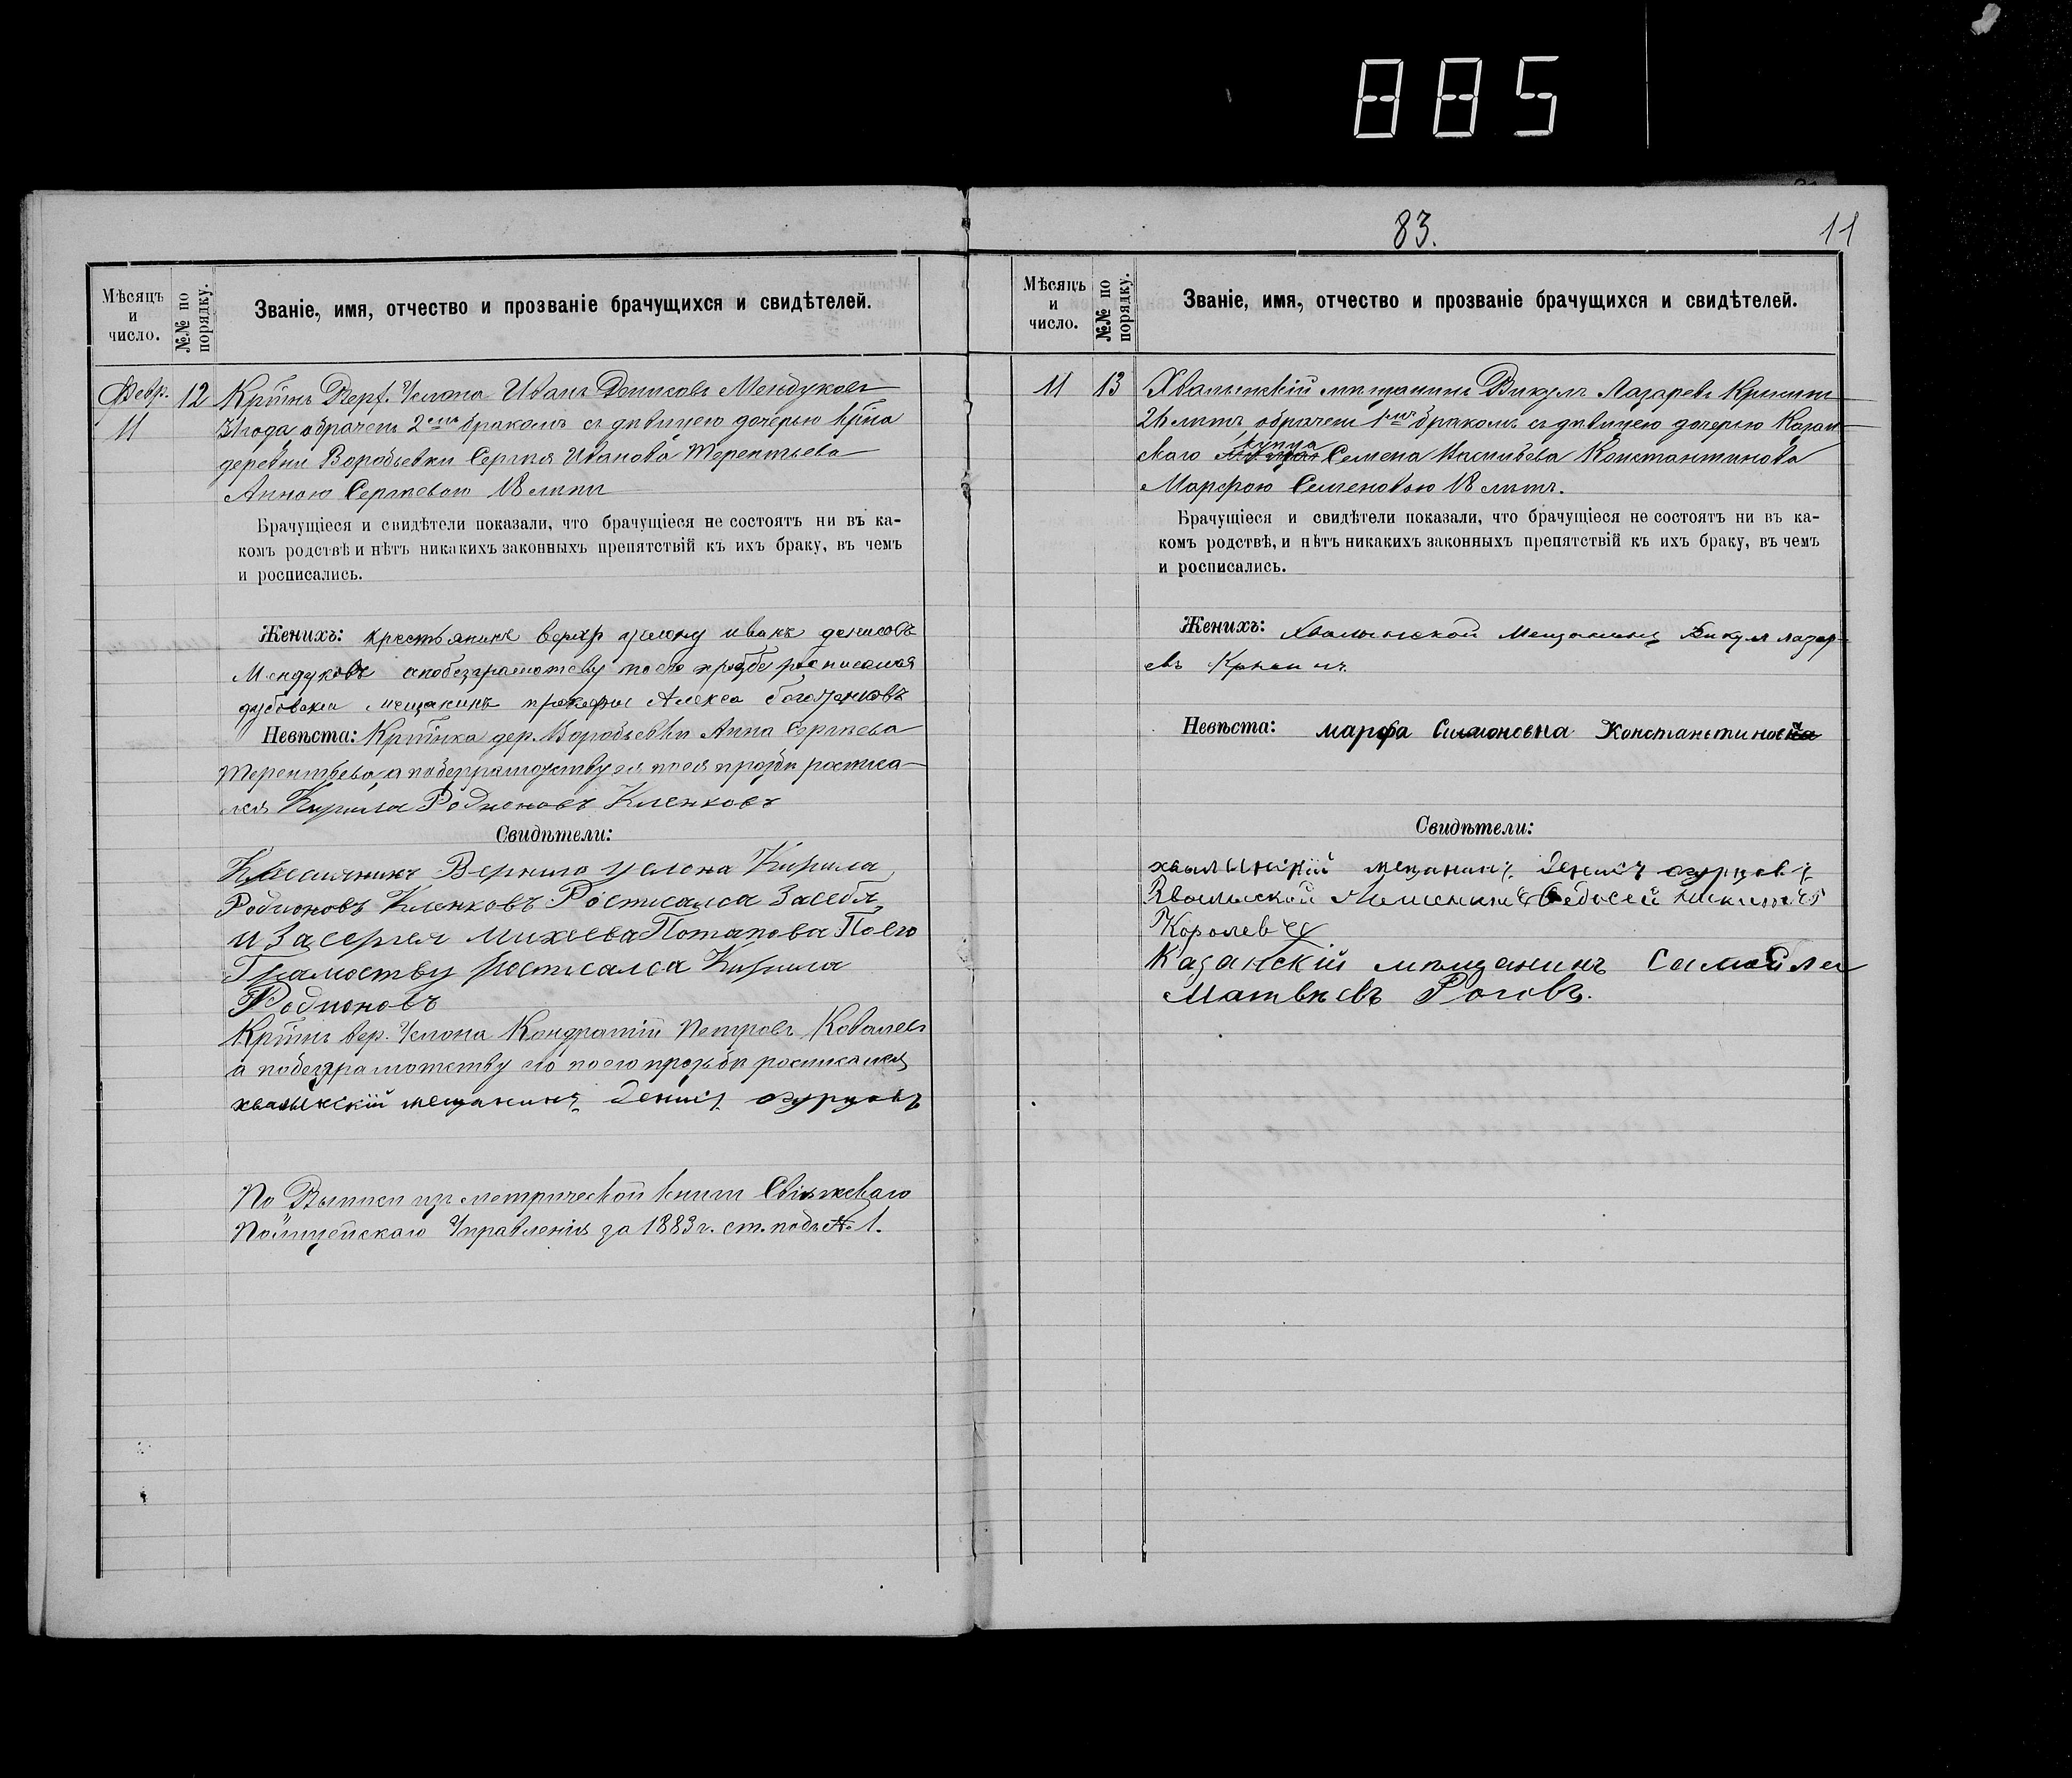 885
83.
11
Мѣсяцъ и число.
№№ по порядку.
Званіе, имя, отчество и прозваніе брачущихся и свидѣтелей.
Февр. 11
12
Кр̃тнъ Верх. Услона Иванъ Денисовъ Мендуковъ
31 года обрачент 2емъ бракомъ съ дѣвицею дочерью кр̃тна
деревни Воробьевки Сергѣя Иванова Терентьева
Анною Сергѣевою 18 лѣтъ
Брачущіеся и свидѣтели показали, что брачущіеся не состоятъ ни въ ка-
комъ родствѣ и нѣтъ никакихъ законныхъ препятствій къ ихъ браку, въ чемъ
и росписались.
Женихъ: крестьянинъ верхр услону иванъ денисовъ
Мендуковъ апобезграмотсву поево прозбе росписался
дубовскаи мещанинъ Алекса
Невѣста: Кр̃тнка дер. Воробьевки Анна Сергѣева
Терентьева а побезграмотству ея поея прозбѣ росписа-
лся Кирила Родионовъ Кленковъ
Свидѣтели:
Кресиянинъ Верниго услона Кирила
Родионовъ Кленковъ Ростисалса Засебя
и За сергея Михеева Потапова Поего
Грамоству Ростисалса Кирила
Родионовъ
Кр̃тнъ вер. Услона Кондратій Петровъ Ковалевъ
а побезграмотству его поего прозьбѣ росписался
хвалынскій мещанинъ Денисъ огурцовъ
По Выписи изъ метрической книги Свіяжскаго
Полицейскаго Управленія за 1883 г. ст. подъ № 1.
Мѣсяцъ и число.
№№ по порядку.
Званіе, имя, отчество и прозваніе брачущихся и свидѣтелей.
11
13
Хвалынскій мѣщанинъ Викулъ Лазаревъ
26 лѣтъ обрачент 1мъ бракомъ съ дѣвицею дочерью Казан-
скаго купца Семена Васильева Константинова
Марфою Семеновою 18 лѣтъ.
Брачущіеся и свидѣтели показали, что брачущіеся не состоятъ ни въ ка-
комъ родствѣ, и нѣтъ никакихъ законныхъ препятствій къ ихъ браку, въ чемъ
и росписались.
Женихъ: Хвалынской Мещанинъ Викул лазар-
евъ
Невѣста: марфа Симоновна Константинов
Свидѣтели:
хвалынскій мещанинъ Денисъ огурцовъ
Хвалыской Мешенинъ Федосей Никитевъ
Королевъ
Казанскій мѣщанинъ Самойла
Матвѣевъ Роговъ.